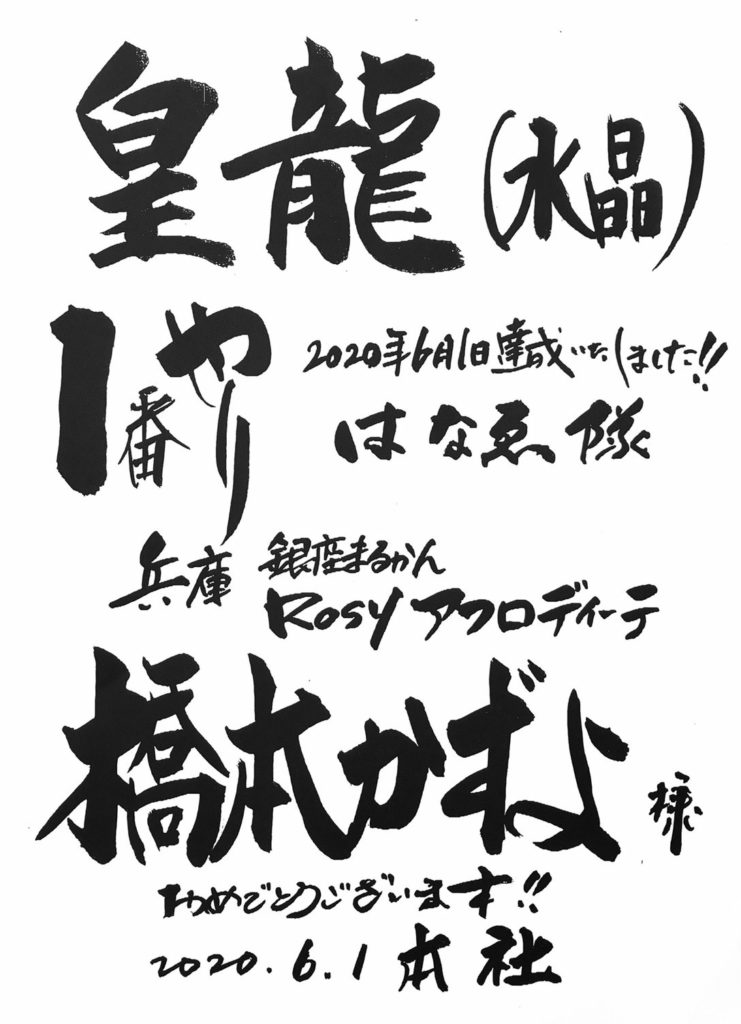 皇龍(水晶)
1番やり
2020年6月1日達成いたしました!!
はなゑ隊
兵庫 銀座まるかん
Rosyアフロディーテ
橋本かずよ様
おめでとうございます!!
2020.6.1 本社